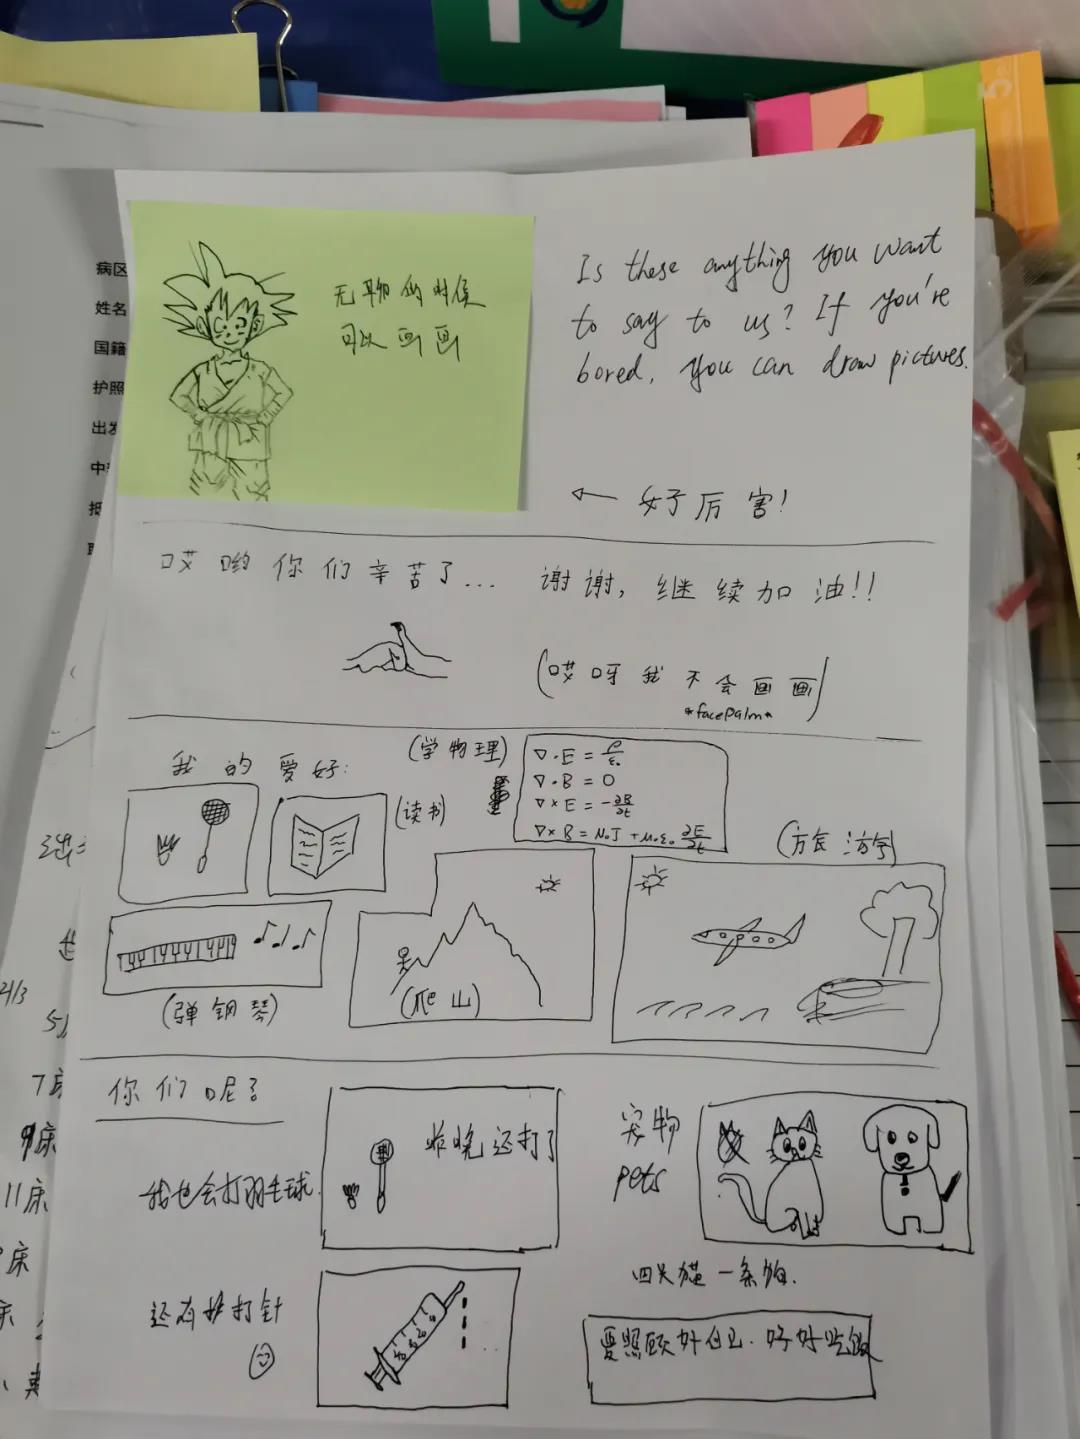 病区
姓名
国籍
护照
出发
无聊的时候
可以画画
Is these anything you want
to say to us? If you're
bored, you can draw pictures.
← 好厉害!
哎哟你们辛苦了... 谢谢, 继续加油!!
(哎呀我不会画画)
*facepalm*
我的爱好:
(学物理)
∇·E = ρ/ε₀
∇·B = 0
∇×E = -∂B/∂t
∇×B = μ₀J + μ₀ε₀ ∂E/∂t
(读书)
(弹钢琴)
(爬山)
(旅游)
你们呢?
我也会打羽毛球.
昨晚还打了
宠物
pets
四只猫一条狗.
还有打针
要照顾好自己. 好好吃饭
7床
9床
11床